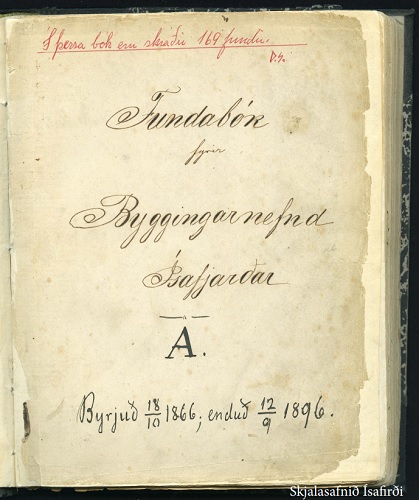 Í þessa bók eru skráðir 169 fundir.
Fundabók
fyrir
Byggingarnefnd
Ísafjarðar
A.
Byrjuð 18/10 1866; enduð 12/9 1896.
Skjalasafnið Ísafirði